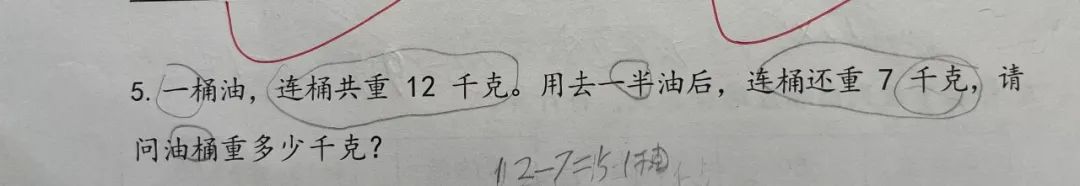 5. 一桶油，连桶共重 12 千克。用去一半油后，连桶还重 7 千克，请
问油桶重多少千克？
12-7=5